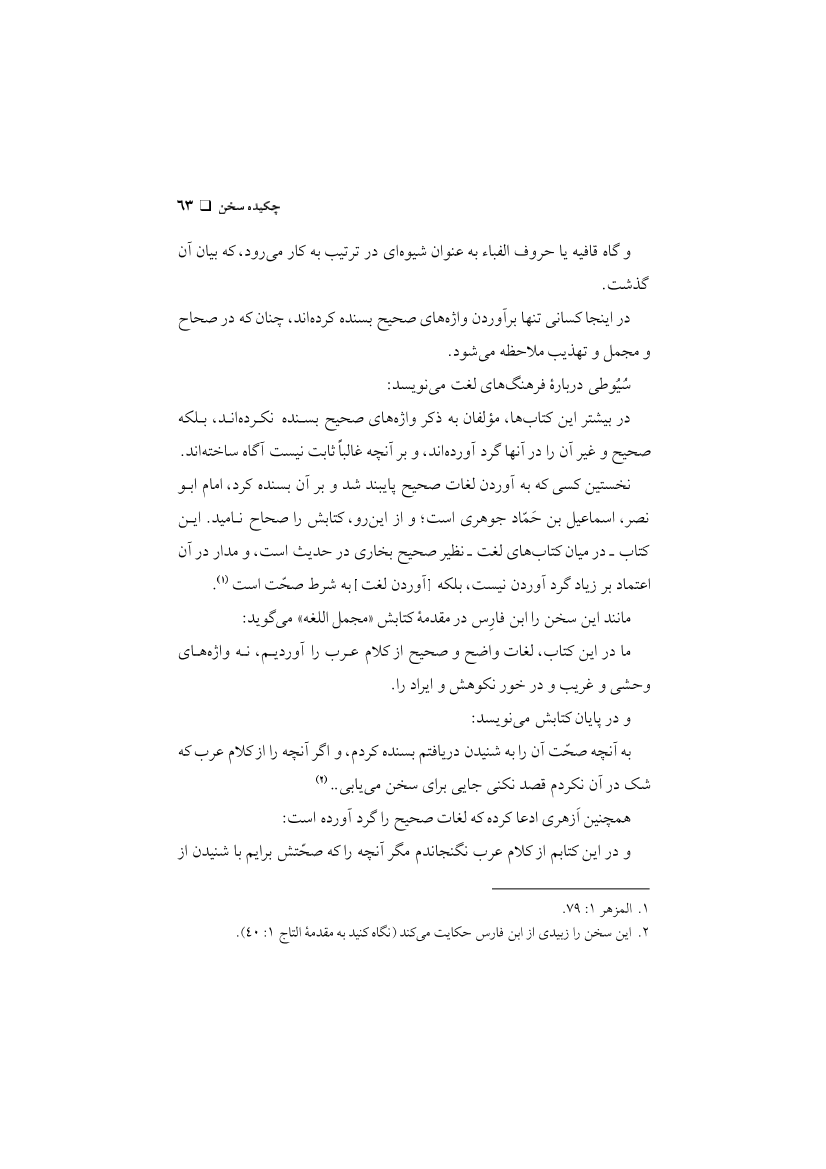 چکیده سخن ❏ ٦٣
و گاه قافیه یا حروف الفباء به عنوان شیوه‌ای در ترتیب به کار می‌رود، که بیان آن
گذشت.
در اینجا کسانی تنها برآوردن واژه‌های صحیح بسنده کرده‌اند، چنان که در صحاح
و مجمل و تهذیب ملاحظه می‌شود.
سُیُوطی دربارهٔ فرهنگ‌های لغت می‌نویسد:
در بیشتر این کتاب‌ها، مؤلفان به ذکر واژه‌های صحیح بسنده نکرده‌اند، بلکه
صحیح و غیر آن را در آنها گرد آورده‌اند، و بر آنچه غالباً ثابت نیست آگاه ساخته‌اند.
نخستین کسی که به آوردن لغات صحیح پایبند شد و بر آن بسنده کرد، امام ابو
نصر، اسماعیل بن حَمّاد جوهری است؛ و از این‌رو، کتابش را صحاح نامید. این
کتاب ـ در میان کتاب‌های لغت ـ نظیر صحیح بخاری در حدیث است، و مدار در آن
اعتماد بر زیاد گرد آوردن نیست، بلکه [آوردن لغت] به شرط صحّت است (۱).
مانند این سخن را ابن فارِس در مقدمهٔ کتابش «مجمل اللغه» می‌گوید:
ما در این کتاب، لغات واضح و صحیح از کلام عرب را آوردیم، نه واژه‌های
وحشی و غریب و در خور نکوهش و ایراد را.
و در پایان کتابش می‌نویسد:
به آنچه صحّت آن را به شنیدن دریافتم بسنده کردم، و اگر آنچه را از کلام عرب که
شک در آن نکردم قصد نکنی جایی برای سخن می‌یابی.. (۲)
همچنین اَزهری ادعا کرده که لغات صحیح را گرد آورده است:
و در این کتابم از کلام عرب نگنجاندم مگر آنچه را که صحّتش برایم با شنیدن از
۱. المزهر ۱: ۷۹.
۲. این سخن را زبیدی از ابن فارس حکایت می‌کند (نگاه کنید به مقدمهٔ التاج ۱: ٤٠).